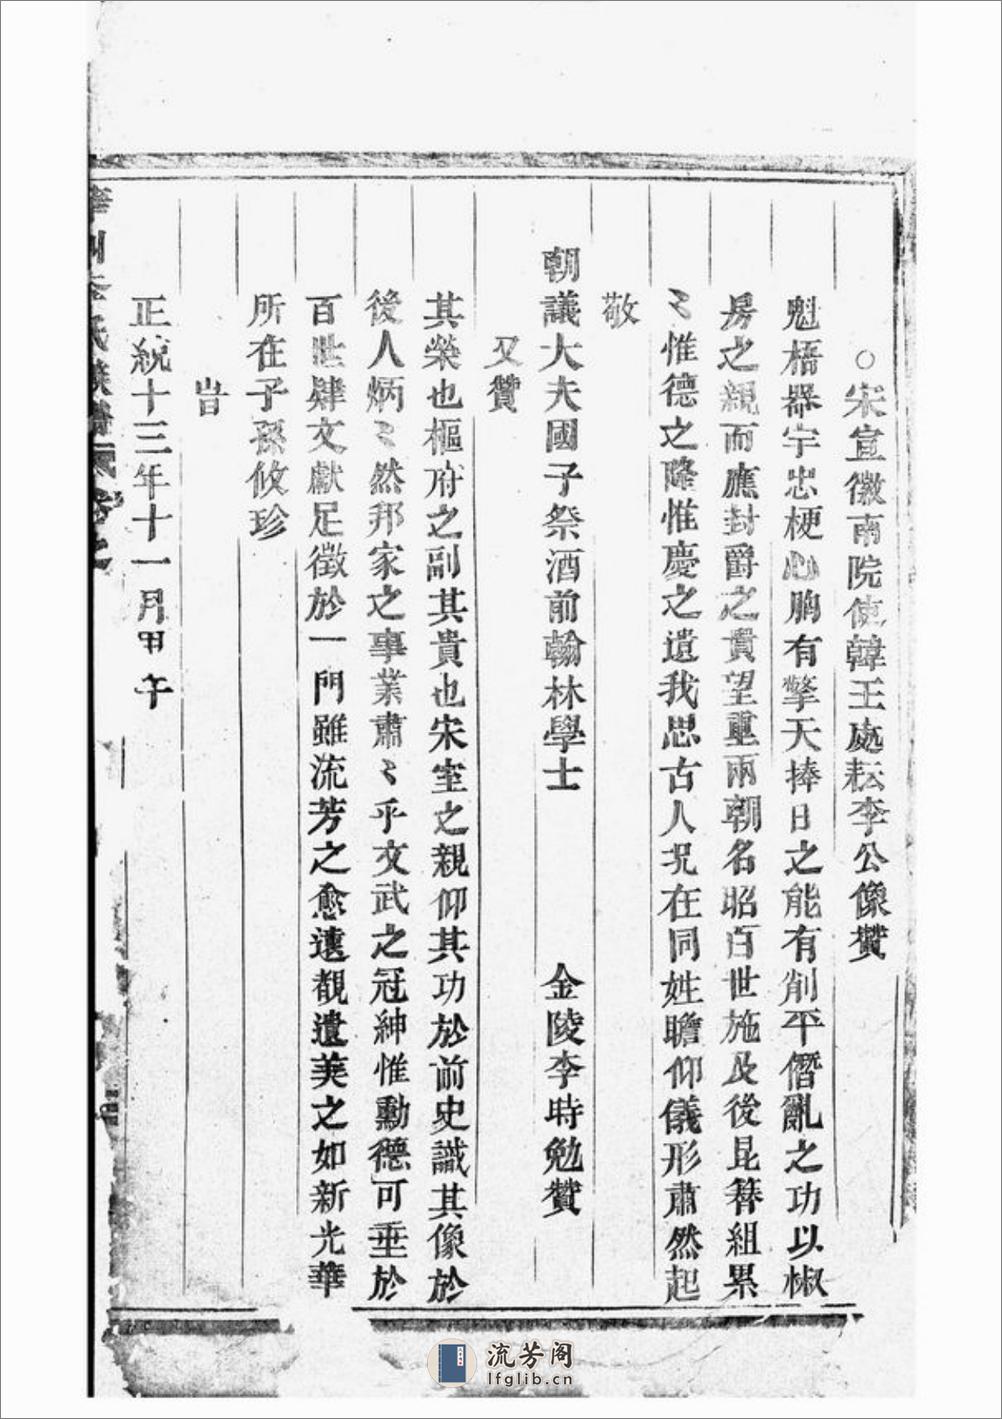 ○宋宣徽南院使韓王處耘李公像贊
魁梧器宇忠梗心胸有擎天捧日之能有削平僭亂之功以椒
房之親而應封爵之貴望重兩朝名昭百世施及後昆簪組累
〻惟德之隆惟慶之遺我思古人況在同姓瞻仰儀形肅然起
敬
朝議大夫國子祭酒前翰林學士 金陵李時勉贊
又贊
其榮也樞府之副其貴也宋室之親仰其功於前史識其像於
後人炳〻然邦家之事業肅〻乎文武之冠紳惟勳德可垂於
百世肆文獻足徵於一門雖流芳之愈遠覩遺美之如新光華
所在子孫攸珍
旹
正統十三年十一月甲午
李氏族譜
流芳阁
lfglib.cn